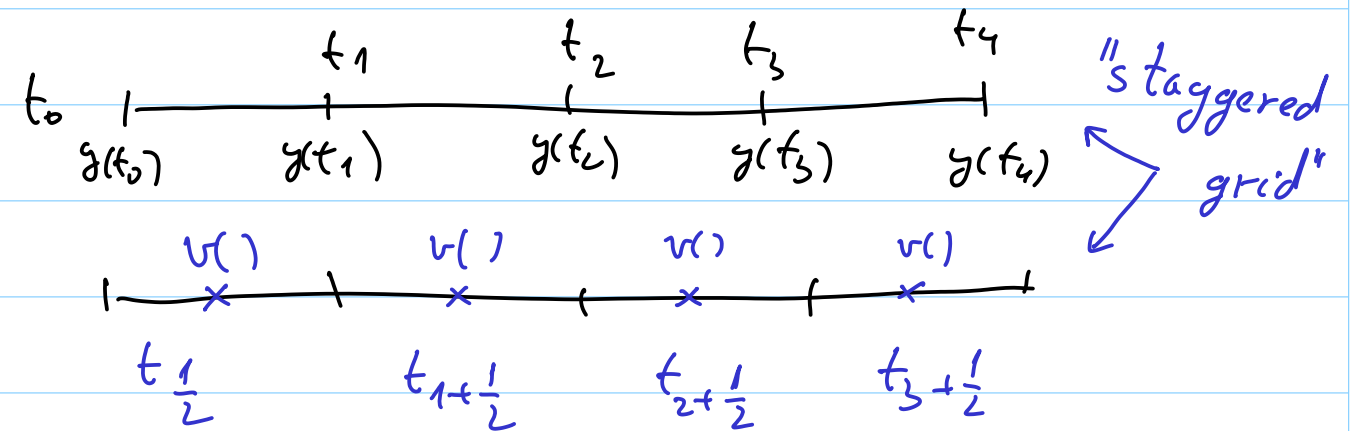 t₀ t₁ t₂ t₃ t₄
y(t₀) y(t₁) y(t₂) y(t₃) y(t₄)
"staggered
grid"
v() v() v() v()
t_{\frac{1}{2}} t_{1+\frac{1}{2}} t_{2+\frac{1}{2}} t_{3+\frac{1}{2}}